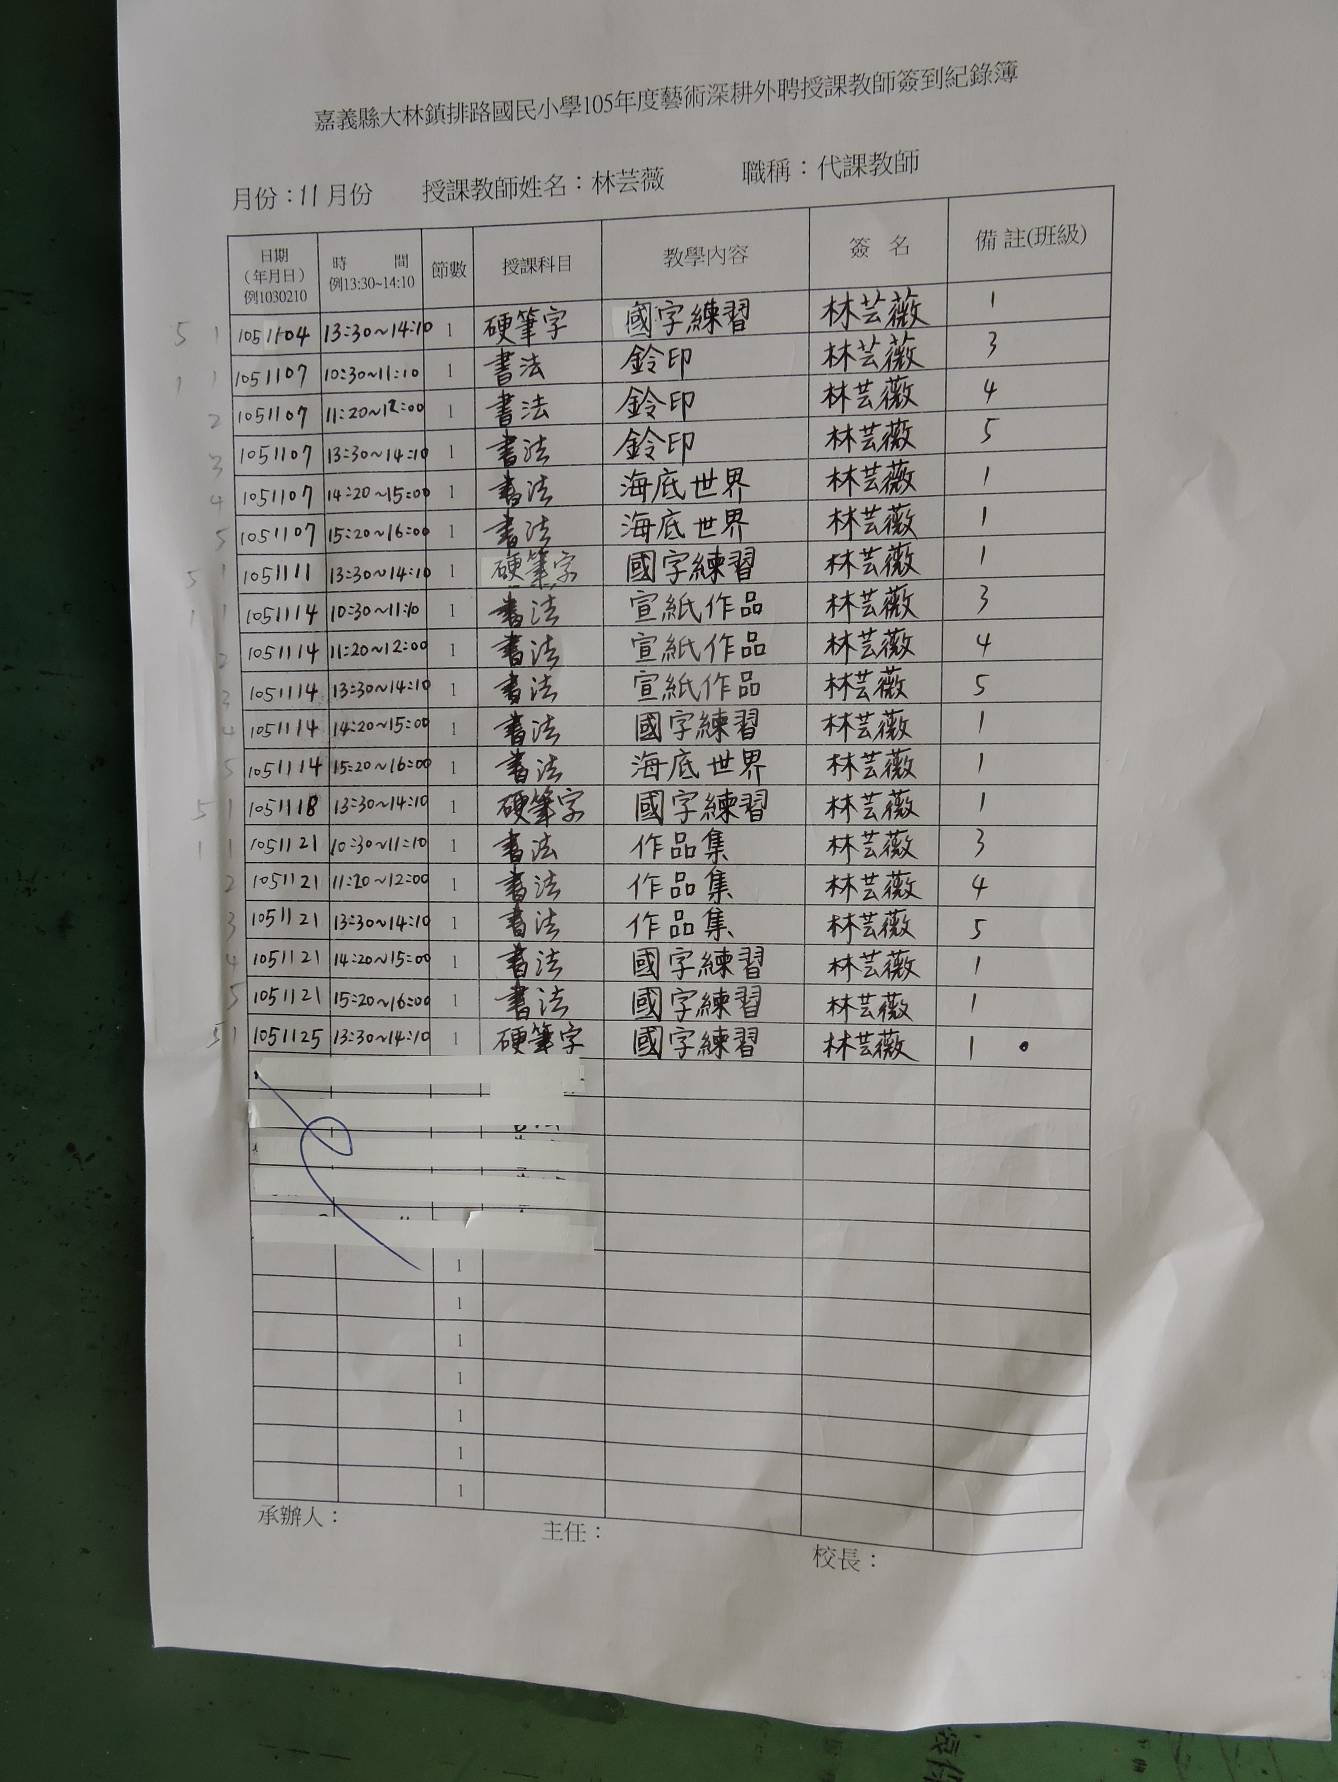 嘉義縣大林鎮排路國民小學105年度藝術深耕外聘授課教師簽到紀錄簿
月份：11月份 授課教師姓名：林芸薇 職稱：代課教師
日期（年月日）例1030210 時間 例13:30~14:10 節數 授課科目 教學內容 簽名 備註(班級)
5 1 1051104 13:30~14:10 1 硬筆字 國字練習 林芸薇 1
1 1 1051107 10:30~11:10 1 書法 鈴印 林芸薇 3
2 1051107 11:20~12:00 1 書法 鈴印 林芸薇 4
3 1051107 13:30~14:10 1 書法 鈴印 林芸薇 5
4 1051107 14:20~15:00 1 書法 海底世界 林芸薇 1
5 1051107 15:20~16:00 1 書法 海底世界 林芸薇 1
5 1 1051111 13:30~14:10 1 硬筆字 國字練習 林芸薇 1
1 1 1051114 10:30~11:10 1 書法 宣紙作品 林芸薇 3
2 1051114 11:20~12:00 1 書法 宣紙作品 林芸薇 4
3 1051114 13:30~14:10 1 書法 宣紙作品 林芸薇 5
4 1051114 14:20~15:00 1 書法 國字練習 林芸薇 1
5 1051114 15:20~16:00 1 書法 海底世界 林芸薇 1
5 1 1051118 13:30~14:10 1 硬筆字 國字練習 林芸薇 1
1 1 1051121 10:30~11:10 1 書法 作品集 林芸薇 3
2 1051121 11:20~12:00 1 書法 作品集 林芸薇 4
3 1051121 13:30~14:10 1 書法 作品集 林芸薇 5
4 1051121 14:20~15:00 1 書法 國字練習 林芸薇 1
5 1051121 15:20~16:00 1 書法 國字練習 林芸薇 1
5 1 1051125 13:30~14:10 1 硬筆字 國字練習 林芸薇 1
1
1
1
1
1
1
1
承辦人： 主任： 校長：